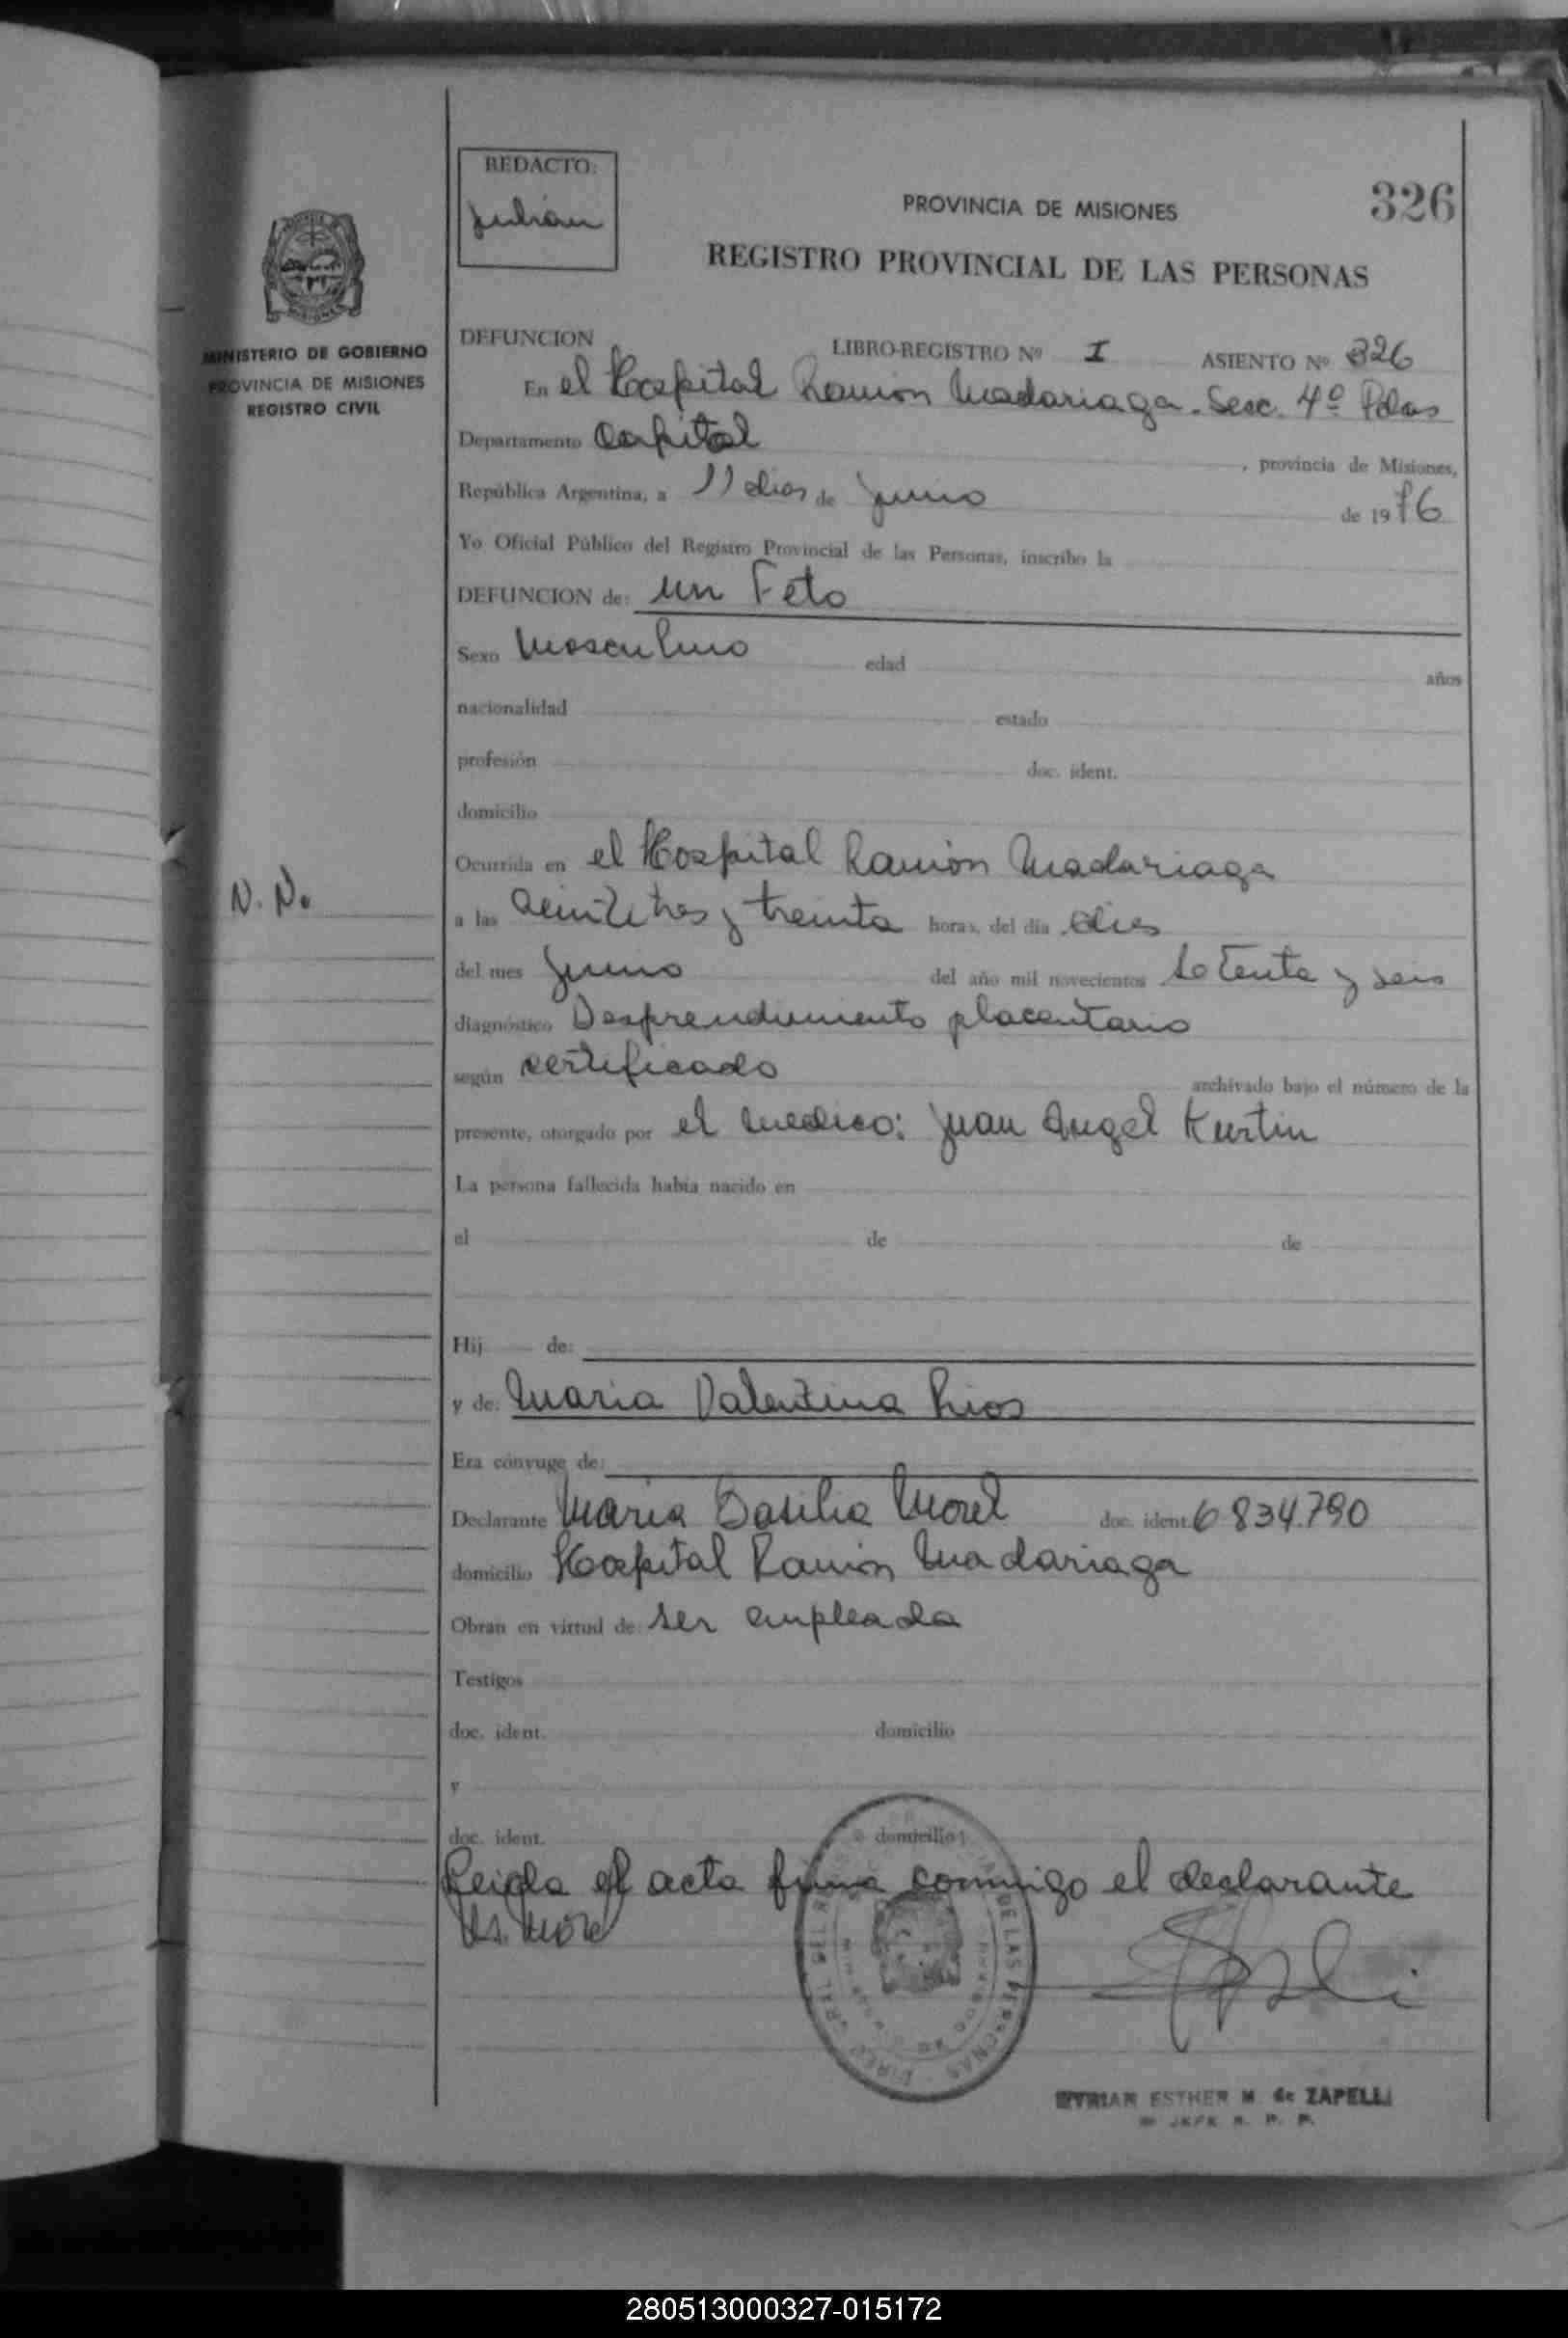 REDACTO:
Julián
326
PROVINCIA DE MISIONES
REGISTRO PROVINCIAL DE LAS PERSONAS
MINISTERIO DE GOBIERNO
PROVINCIA DE MISIONES
REGISTRO CIVIL
DEFUNCION LIBRO-REGISTRO Nº I ASIENTO Nº 326
En el Hospital Ramón Madariaga. Secc. 4º Pdas
Departamento Capital , provincia de Misiones,
República Argentina, a 11 dias de Junio de 1976
Yo Oficial Público del Registro Provincial de las Personas, inscribo la
DEFUNCION de: un Feto
Sexo Masculino edad años
nacionalidad estado
profesión doc. ident.
domicilio
Ocurrida en el Hospital Ramón Madariaga
N. N.
a las veintitres y treinta horas, del día dies
del mes Junio del año mil novecientos setenta y seis
diagnóstico Desprendimiento placentario
según certificado archivado bajo el número de la
presente, otorgado por el medico: Juan Angel Kurtin
La persona fallecida había nacido en
el de de
Hij de:
y de: Maria Valentina Rios
Era cónyuge de:
Declarante Maria Basilia Morel doc. ident. 6834.790
domicilio Hospital Ramón Madariaga
Obran en virtud de: ser empleada
Testigos
doc. ident. domicilio
y
doc. ident. domicilio
Leigda el acta firma conmigo el declarante
Morel
DE LAS PERSONAS
MYRIAN ESTHER M. de ZAPELLI
JEFE R. P. P.
280513000327-015172